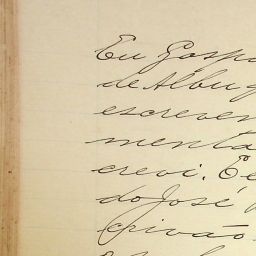 Eu Gaspa
de Albuq
escreven
menta
crevi. Ee
do José
crivão